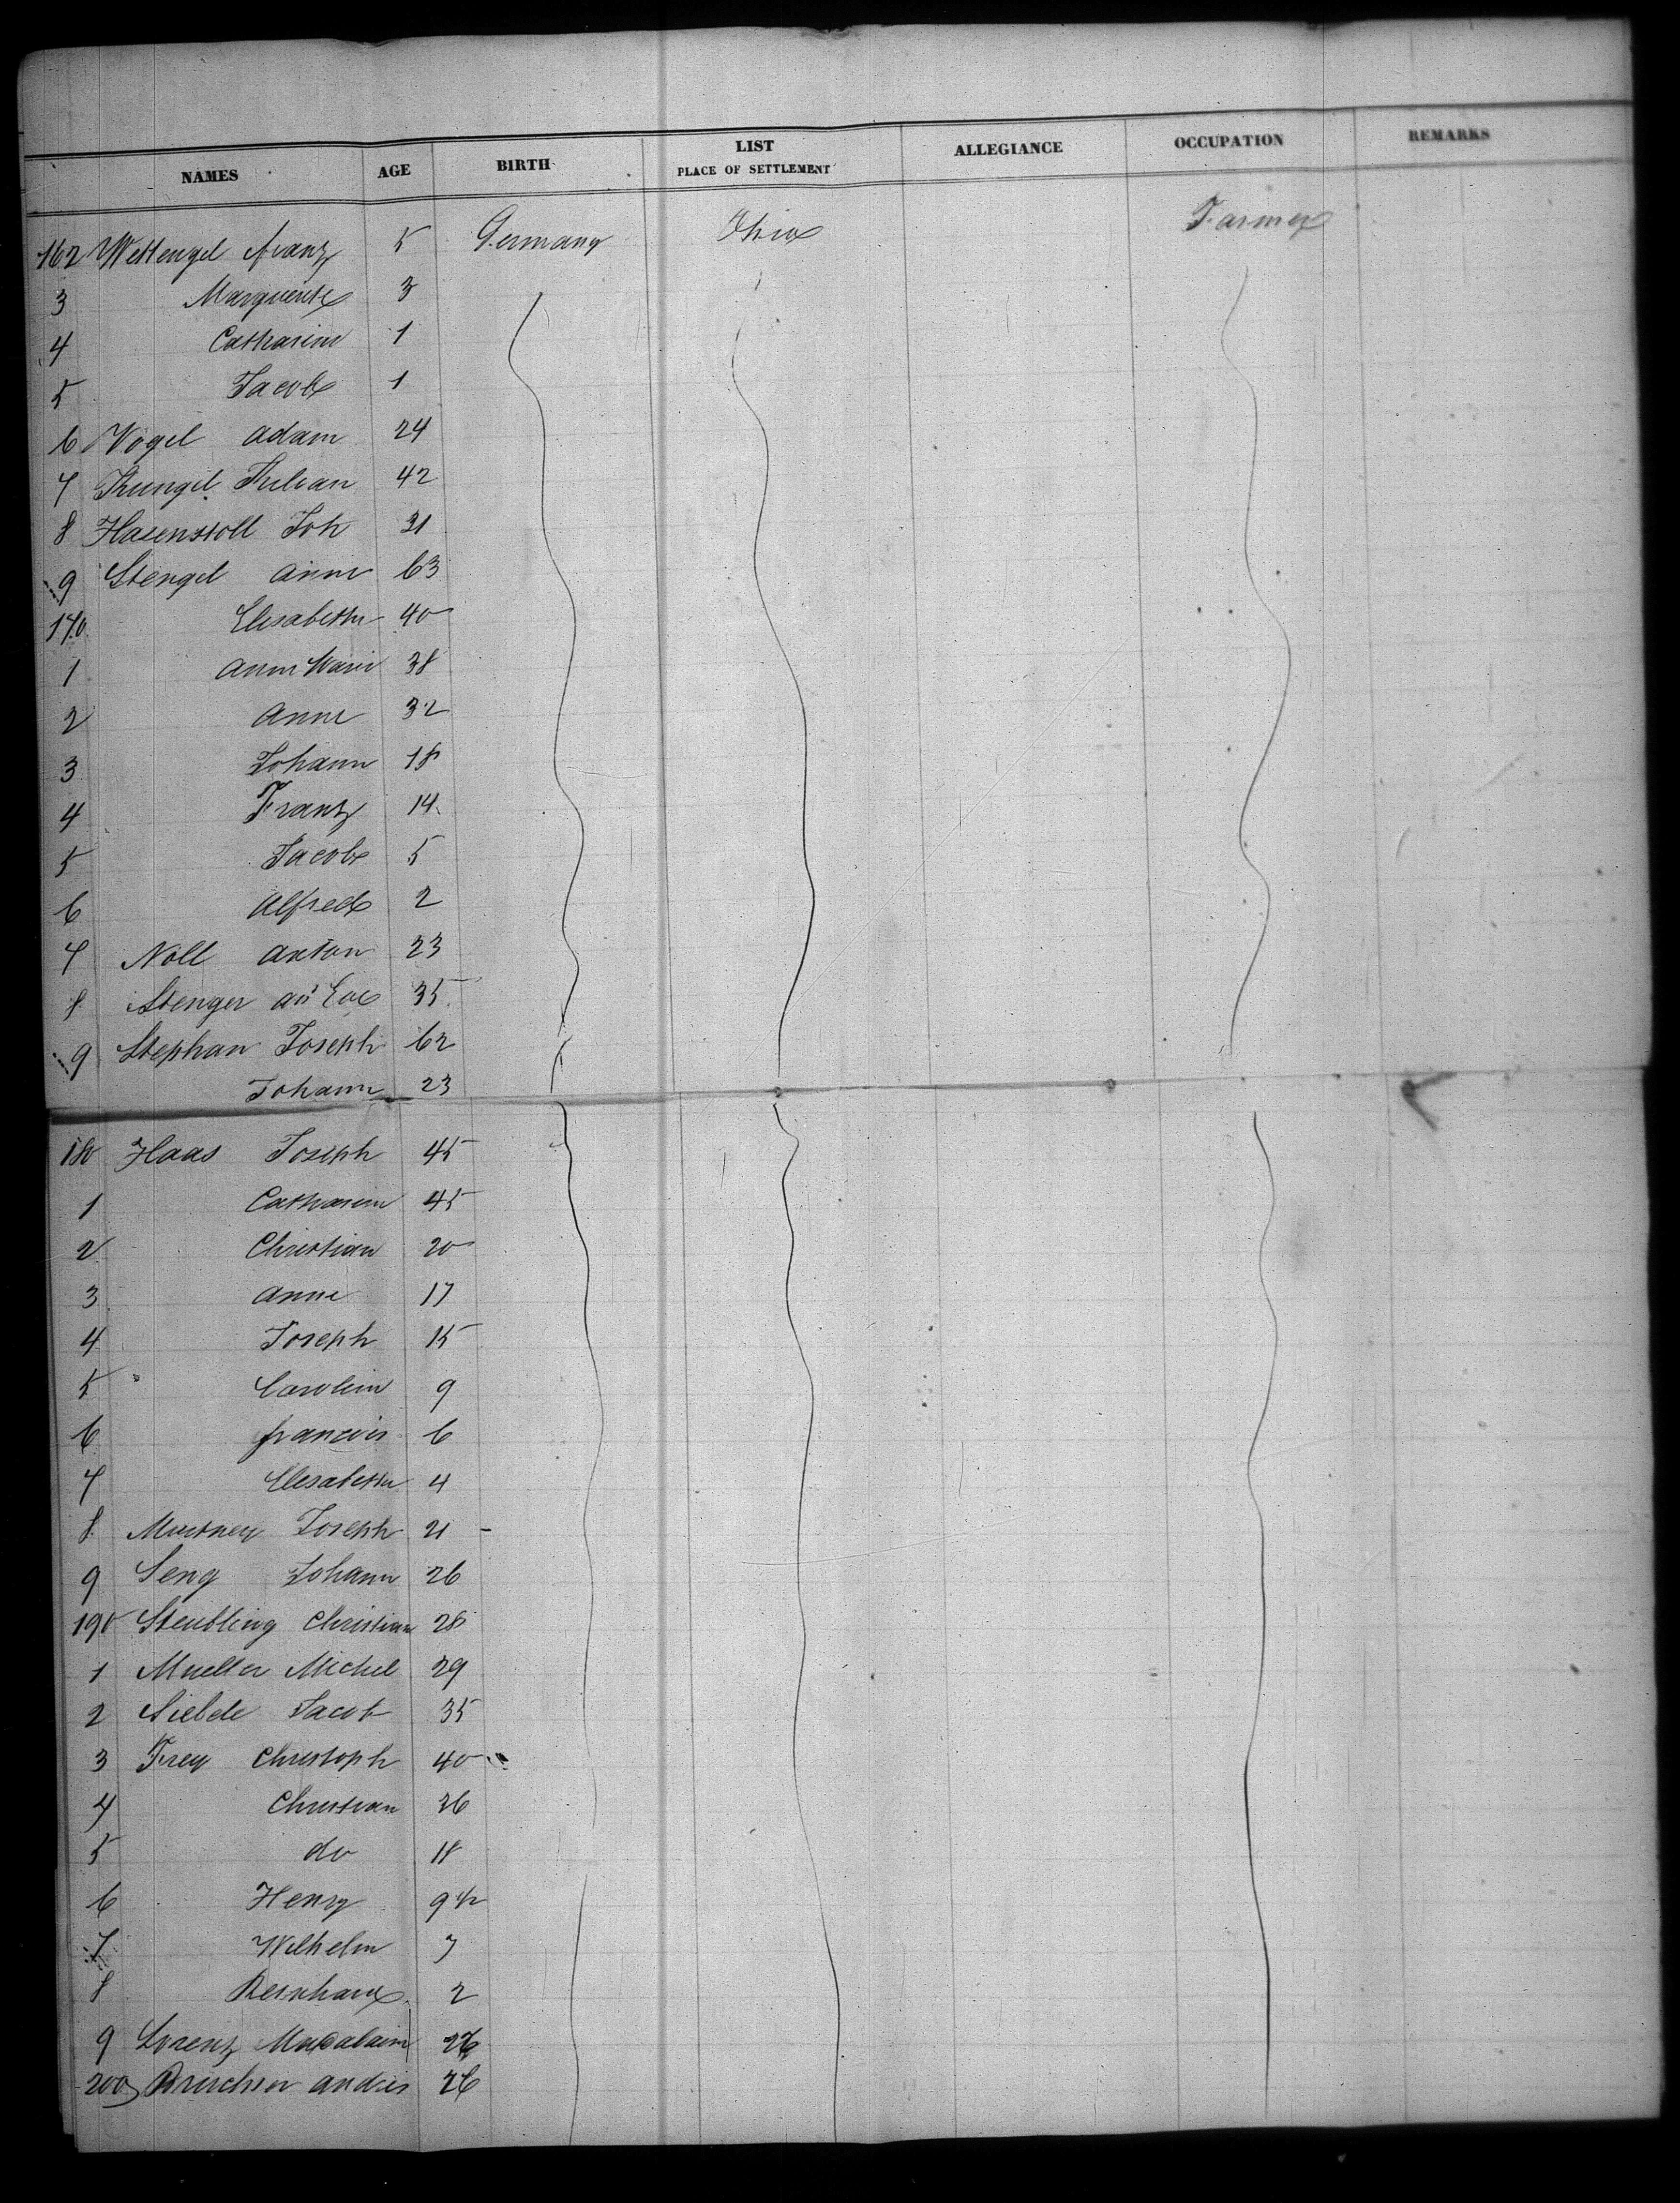 NAMES AGE BIRTH LIST PLACE OF SETTLEMENT ALLEGIANCE OCCUPATION REMARKS
162 Wettengel Franz 5 Germany Ohio Farmer
3 Marguerite 3
4 Catharine 1
5 Jacob 1
6 Vogel Adam 24
7 Kungel Julian 42
8 Joh 31
9 Stengel Anne 63
170 Elisabetha 40
1 Anne Marie 38
2 Anne 32
3 Johann 18
4 Franz 14
5 Jacob 5
6 Alfred 2
7 Noll Anton 23
8 Stenger Eva 35
9 Stephan Joseph 62
Johann 23
180 Haas Joseph 45
1 Catharine 45
2 Christian 20
3 Anne 17
4 Joseph 15
5 Carolin 9
6 Francis 6
7 Elisabetha 4
8 Joseph 21
9 Seng Johann 26
190 Steubling Christian 28
1 Mueller Michel 29
2 Siebele Jacob 35
3 Frey Christoph 40
4 Christian 26
5 do 18
6 Henry 9
7 Wilhelm 7
8 Reinhard 2
9 Lorenz
200 26